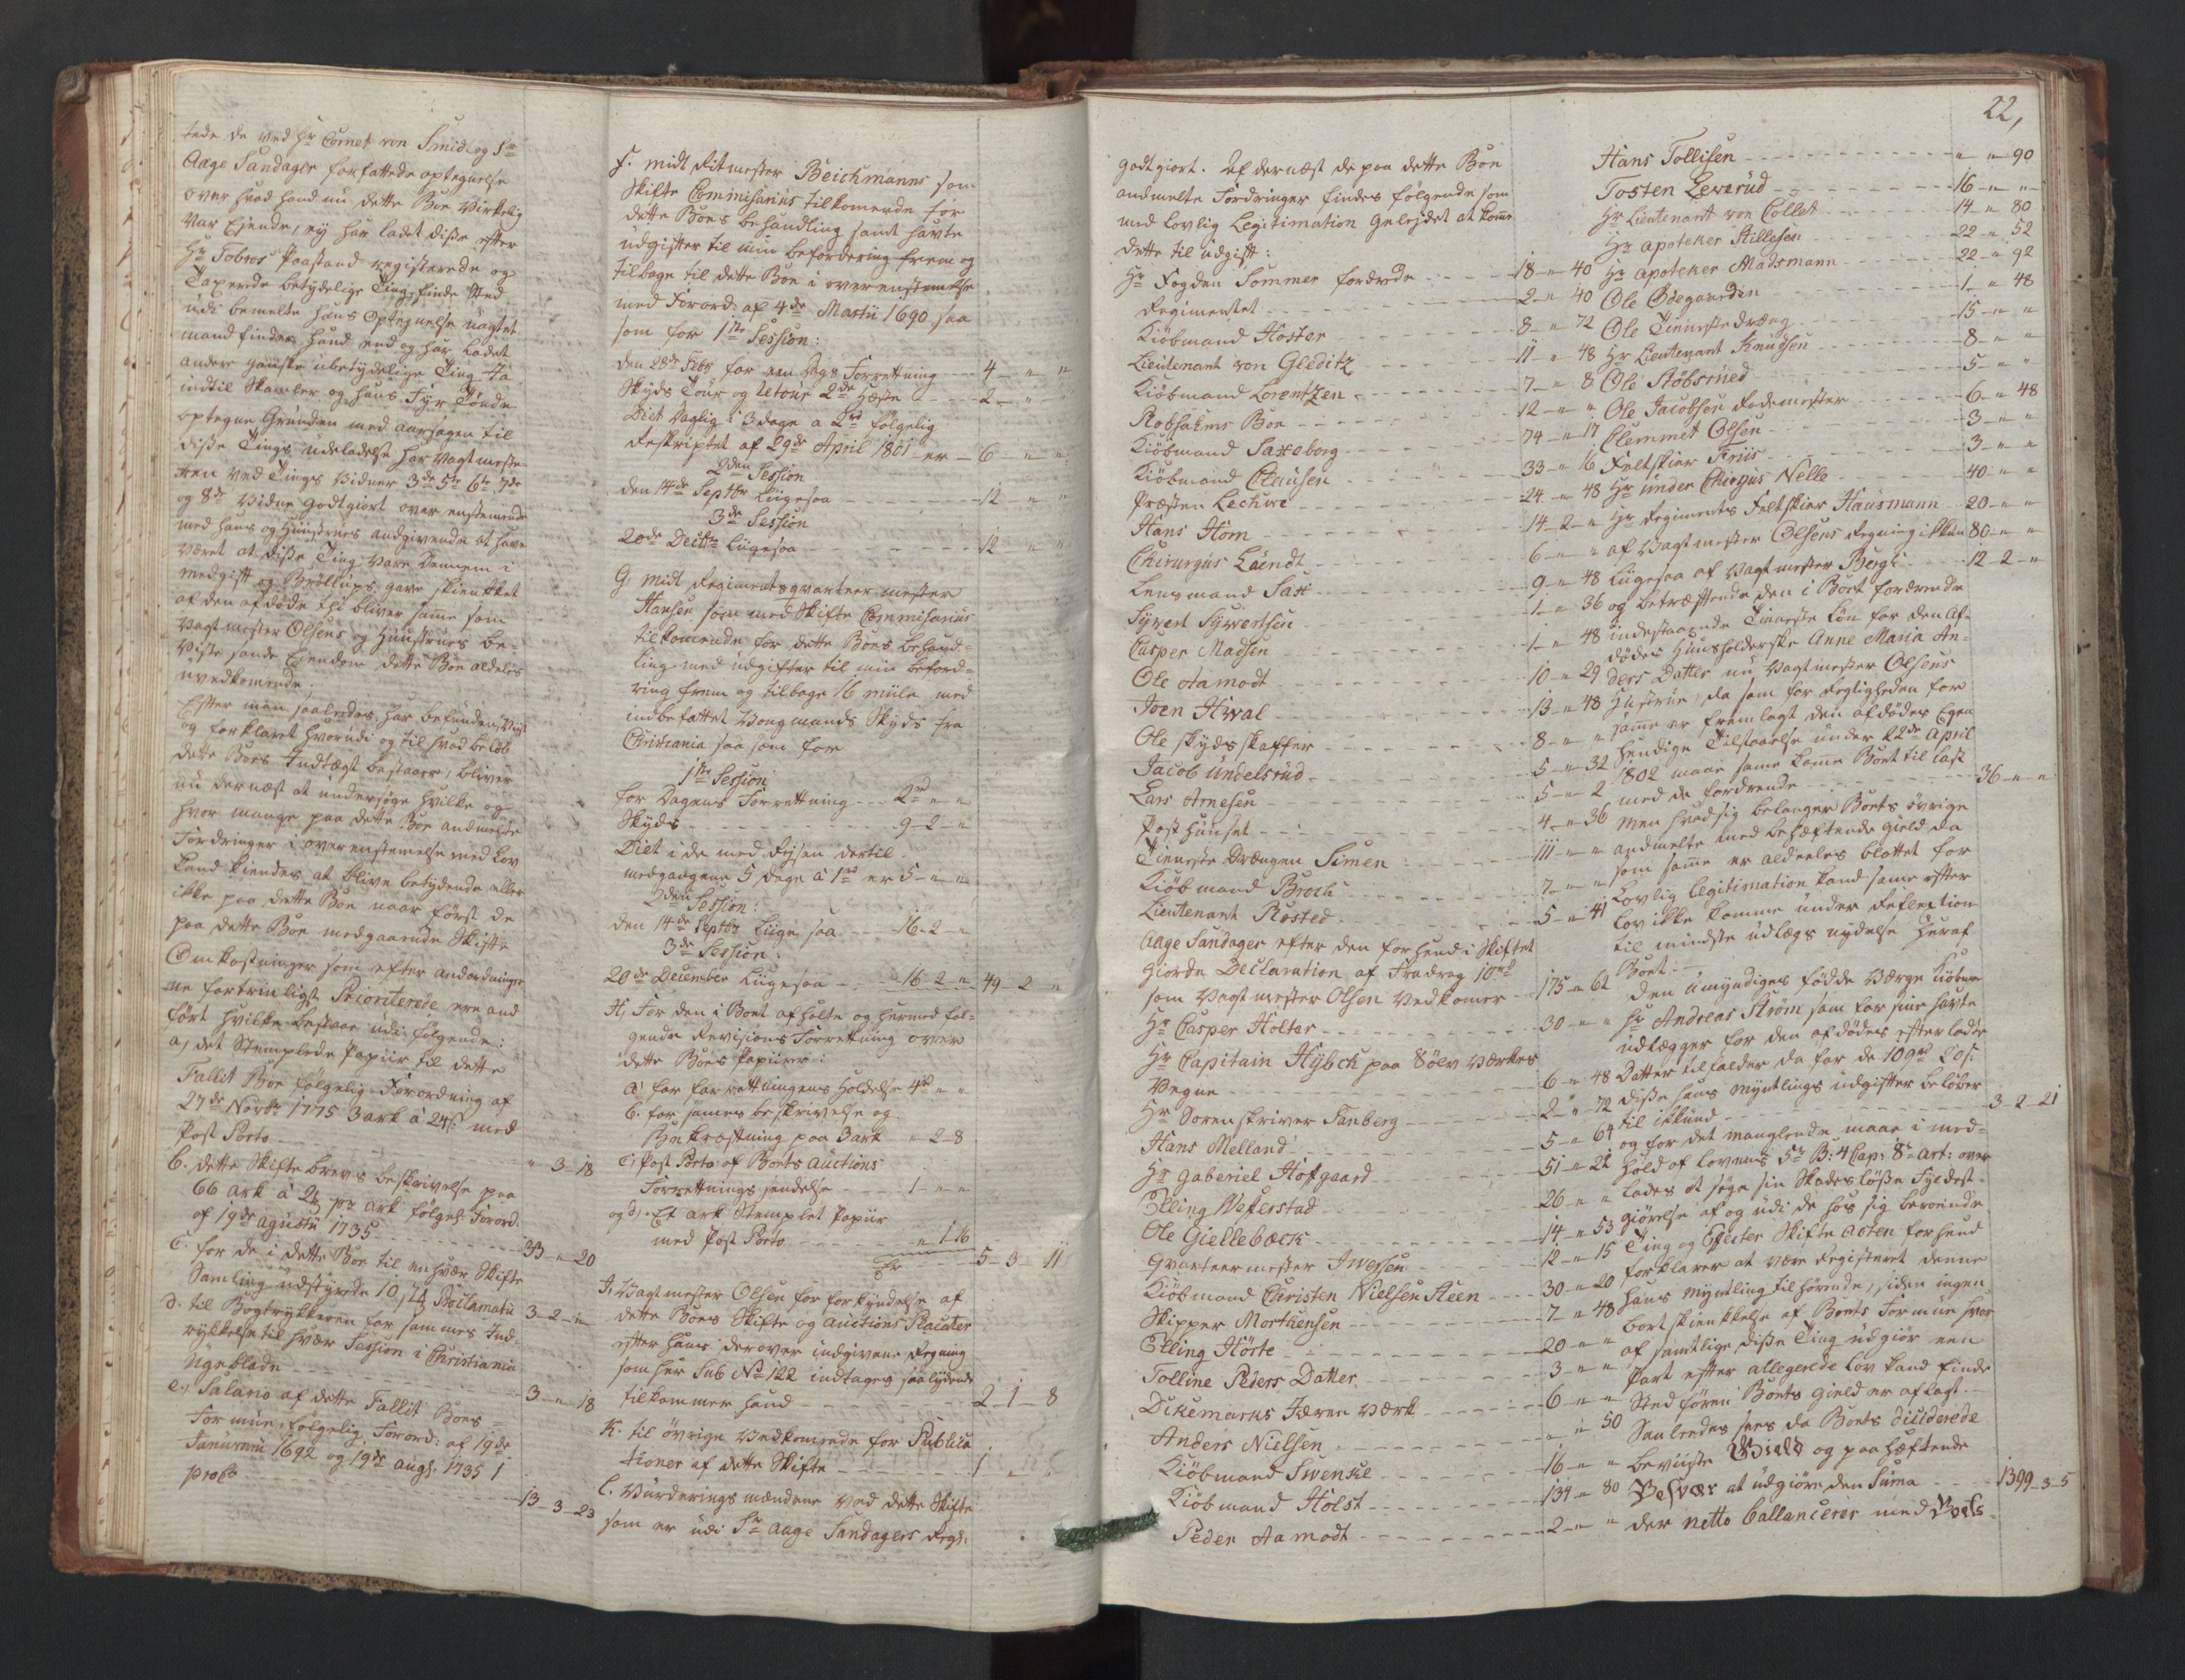 tede de ved Hr Cornet von Smidt og Sr
Aage Sandager forfattede optegnelse
over hvad hand nu dette Boe virkelig
var Ejende, ey har ladet disse efter
Hr Tobros Paastand registerede og
Taxerede betydelige Ting finde Sted
udi bemelte hans Optegnelse uagtet
mand finder, hand end og har ladet
andre ganske ubetydelige Ting Ja
indtil Skamler og hans Fyr Tønde
optegne Grunden med aarsagen til
disse Tings udeladelse har Vagtmeste-
ren ved Tings Vidner 3de 5te 6te 7de
og 8de Vidne godtgiort over ensstemende
med hans og Huustrues andgivende at have
været at disse Ting vare Dennem i
medgift og Brøllups gave skienket
af den afdøde thi bliver samme som
Vagtmester Olsens og Huustrues be-
viiste sande Eiendom dette Boe aldeles
uvedkomende.
Efter man saaledes har befunden viist
og forklaret hvorudi og til hvad beløb
dette Boes Indtægt bestaaer, bliver
nu dernæst at undersøge hvilke og
hvor mange paa dette Boe andmelte
Fordringer i overenstemelse med Lov
kand kiendes at blive betydende eller
ikke paa dette Boe naar først de
paa dette Boe medgaaende Skifte
Omkostninger som efter andordninger-
ne fortrinligst Prioriterede ere and
ført hvilke bestaar udi følgende:
a, det Stemplede Papiir til dette
Fallit Boe følgelig Forordning af
27de Novbr 1775 3 ark á 24 s. med
Post Porto - " 3 - 18
b. dette Skifte brevs beskrivelse paa
66 ark á 2 pr ark følgel: Forord.
af 19de Agustii 1735 - 33 - " 20
c. for de i dette Boe til en hver Skifte
Samling udstyrede 10 Proclamata 3 - 2 - "
d. til Bogtrykkeren for sammes Ind-
rykkelse til hver Session i Christiania
Ugeblade - 3 - " 18
e, Salario af dette Fallit Boes
Formue, følgelig Forord: af 19de
Januarii 1692 og 19de Augs. 1735 1
profo - 13 - 3 - 23
f. midt Ritmester Beichmanns som
Skifte Commisarius tilkomende for
dette Boes behandling samt havte
udgifter til min befordering frem og
tilbage til dette Boe i overenstemelse
med Forord: af 4de Martii 1690 saa
som for 1ste Session:
den 28de Febr for een Dags Forretning - 4 - " "
Skyds Tour og retour 2de Heste - 2 - " "
Diet Daglig i 3 dage a 2rd følgelig
Reskriptet af 29de April 1801 er - 6 - " "
2den Session
den 14de Septbr Liigesaa - 12 - " "
3de Session
20de Decbr Liigesaa - 12 " "
G. midt Regimentsqvarteer mester
Hansen som med Skifte Commisarius
tilkomende for dette Boes behand-
ling med udgifter til min beford-
ring frem og tilbage 16 miile med
indbefattet Vongmands Skyds fra
Christiania saa som for
1ste Session
for Dagens Forretning - 2rd " "
Skyds - 9 - 2 - "
Diet i de med Reysen dertil
medgangne 5 dage á 1rd er 5 - " "
2den Session:
den 14de Septbr Liige saa - 16 - 2 - "
3de Session:
20de December Liigesaa - 16 - 2 - " 49 - 2 "
H, For den i Boet afholte og hermed føl-
gende Revisions Forretning over
dette Boes Papiirer:
a, for forrettningens Holdelse 4rd " "
b. for sammes beskrivelse og
Bekræftning paa 3 ark " 2 - 8
c, Post Porto af Boets Auctions
Forrettnings sendelse - 1 - " "
og d, Et ark Stemplet Papiir
med Post Porto - " 1 - 16
er - 5 - 3 - 11
I, Vagtmester Olsen for forkyndelse af
dette Boes Skifte og Auctions Placater
efter hans derover indgivene Regning
som her Sub No 122 indtages saalydende
tilkommer hand - 2 - 1 - 8
K. til øvrige Vedkomende for Publica
tioner af dette Skifte - 1 " "
L. Vurderings mændene ved dette Skifte
som er udi Sr Aage Sandagers Regn:
22,
godtgiort. Af dernæst de paa dette Boe
andmelte Fordringer findes følgende som
med lovlig Legitimation geleydet at kome
dette til udgift:
Hr Fogden Sommer fordrede - 18 - " 40
Regimentet - 2 - " 40
Kiøbmand Hoster - 8 - " 72
Lieutenant von Gleditz - 11 - " 48
Kiøbmand Lorentzen - 7 - " 8
Robsahms Boe - 12 - " "
Kiøbmand Saxeborg - 74 - " 17
Kiøbmand Clausen - 33 - " 16
Præsten Lechwe - 24 - " 48
Hans Hom - 14 - 2 - "
Chirurgus Laendt - 6 - " "
Lensmand Sax - 9 - " 48
Syvert Syvertsen - 1 - " 36
Casper Madsen - 1 - " 48
Ole Aamodt - 10 - " 29
Joen Hwal - 13 - " 48
Ole Skydsskaffer - 8 - " "
Jacob Undelsrud - 5 - " 32
Lars Arnesen - 5 - " 2
Post Huuset - 4 - " 36
Tieneste Drængen Simen - 111 - " "
Kiøbmand Broch - 7 - " "
Lieutenant Rosted - 5 - " 41
Aage Sandager efter den forhend i Skiftet
giorde Declaration af Fradrag 10rd
som Vagtmester Olsen vedkomer - 175 - " 62
Hr Casper Holter - 30 - " "
Hr Capitain Hybch paa Sølv værkets
Vegne - 6 - " 48
Hr Sorenskriver Fanberg - 2 - " 72
Hans Melland - 5 - " 64
Hr Gaberiel Hofgaard - 51 - " 22
Elling Weferstad - 26 - " "
Ole Giellebæck - 14 - " 53
Qvarteermester Iwersen - 12 - " 15
Kiøbmand Christen Nielsen Steen - 30 - " 20
Skipper Morthensen - 7 - " 48
Elling Hörte - 20 - " "
Tolline Peders Datter - 3 - " "
Dikemarks Jæren Værk - 6 - " "
Anders Nielsen - " - " 50
Kiøbmand Swenske - 16 - " "
Kiøbmand Holst - 134 - " 80
Peder Aamodt - 2 - " "
Hans Tollisen - " - " 90
Tosten Leverud - 16 - " "
Hr Lieutenant von Collet - 14 - " 80
Hr Apoteker Stillesen - 22 - " 52
Hr Apoteker Madsmann - 22 - " 92
Ole Ødegaarden - 1 - " 48
Ole Tienestedræng - 15 - " "
Hr Lieutenant Knudsen - 8 - " "
Ole Støbsrued - 5 - " "
Ole Jacobsen Rodemester - 6 - " 48
Clemmet Olsen - 3 - " "
Feltskier Friis - 3 - " "
Hr Under Chirgus Nelle - 40 - " "
Hr Regiments Feltskier Hausmann 20 - " "
af Vagtmester Olsens Regning ikkun 80 - " "
Liigesaa af Vagtmester Bergh - 12 - 2 - "
og betræffende den i Boet fordrende
indestaaende Tieneste Løn for den af-
dødes Huusholderske Anne Maria An-
ders Datter nu Vagtmester Olsens
Hustrue, da som for Rigtigheden for
samme er fremlagt den afdødes Egen
hændige Tilstaaelse under 22de April
1802 maae samme kome Boet til last
med de fordrende - 36 - " "
Men hvad sig belanger Boets øvrige
andmelte med behæftende gield da
som same er aldeeles blottet for
Lovlig Legitimation kand same efter
Lov ikke komme under Reflection
til mindste udlægs nydelse heraf
Boet:-
Den umyndiges fødde Værge Kiøbm:
Sr Andreas Strøm som for sine havte
udlægger for den afdødes efterladte
Datter tilfalder da for de 109rd
disse hans Myntlings udgifter beløber
til ikkund - 3 - 2 - 21
og for det manglende maae i med-
Hold af Lovens 5te B: 4 Cap: 8de Art: over
lades at søge sin Skadesløse Fyldest-
giørelse af og udi de hos sig beroende
Ting og Effecter Skifte Acten forhend
forklarer at være Registeret denne
hans Myntling tilhørende, siden ingen
bortskienkelse af Boets Formue hvor
af samtlige disse Ting udgiør een
Part efter allegerede Lov kand finde
Sted førend Boets gield er aflagt.-
Saaledes sees da Boets diciderede
beviiste Gield og paahæftende
Besvær at udgiøre den Suma - 1399 - 3 - 5
der netto ballancerer med Boets